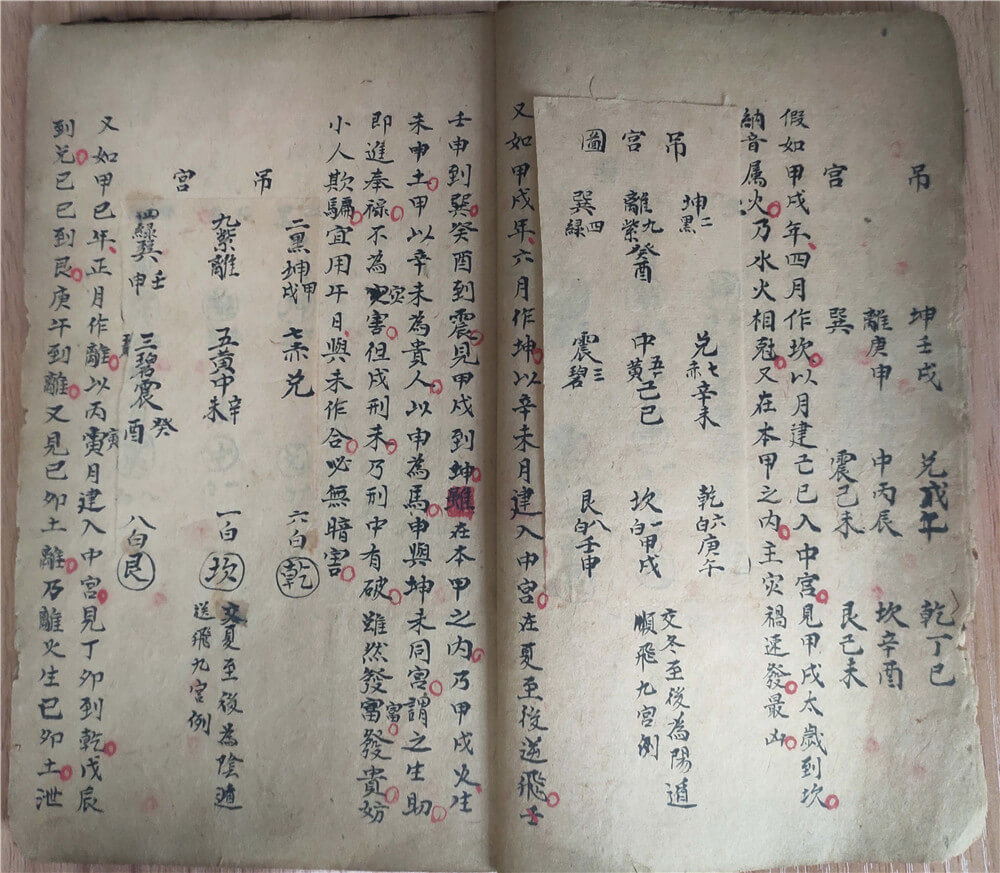 吊　宮
坤壬戌　兌戊午　乾丁巳
離庚申　中丙辰　坎辛酉
巽　震己未　艮己未
假如甲戌年四月作坎以月建己巳入中宮見甲戌太歲到坎
納音屬火乃水火相尅又在本甲之內主灾禍速發最凶
吊宮圖
坤二黑　兌七赤辛未　乾六白庚午
離九紫癸酉　中五黃己巳　坎一白甲戌
巽四綠　震三碧　艮八白壬申
交冬至後為陽遁
順飛九宮例
又如甲戌年六月作坤以辛未月建入中宮在夏至後逆飛壬
壬申到巽癸酉到震見甲戌到坤雖在本甲之內乃甲戌火生
未申土甲以辛未為貴人以申為馬申與坤未同宮謂之生助
即進奉祿不為灾害但戌刑未乃刑中有破雖然發富發貴妨
小人欺騙宜用午日與未作合必無暗害
吊　宮
二黑坤甲戌　七赤兌　六白乾
九紫離　五黃中辛未　一白坎
四綠巽壬申　三碧震癸酉　八白艮
交夏至後為陰遁
逆飛九宮例
又如甲巳年正月作離以丙寅月建入中宮見丁卯到乾戊辰
到兌己巳到艮庚午到離又見己卯土離乃離火生己卯土泄